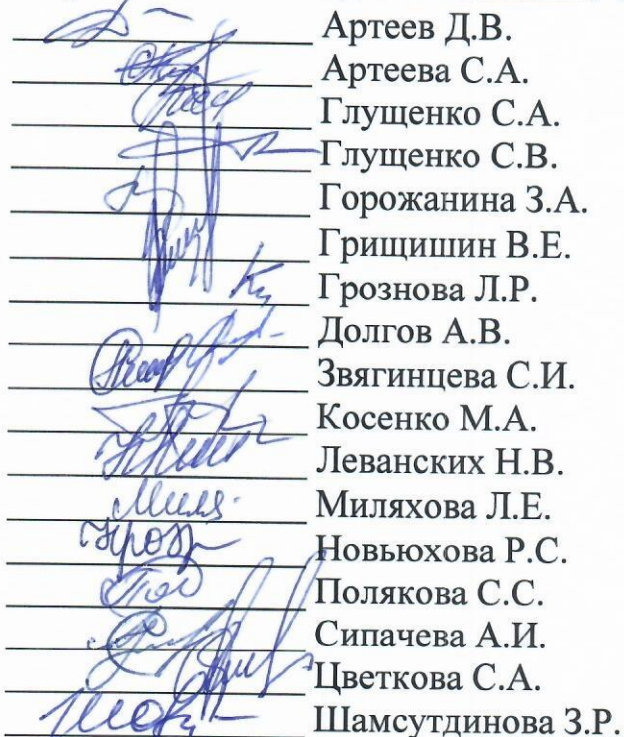 Артеев Д.В.
Артеева С.А.
Глущенко С.А.
Глущенко С.В.
Горожанина З.А.
Грищишин В.Е.
Грознова Л.Р.
Долгов А.В.
Звягинцева С.И.
Косенко М.А.
Леванских Н.В.
Миляхова Л.Е.
Новьюхова Р.С.
Полякова С.С.
Сипачева А.И.
Цветкова С.А.
Шамсутдинова З.Р.